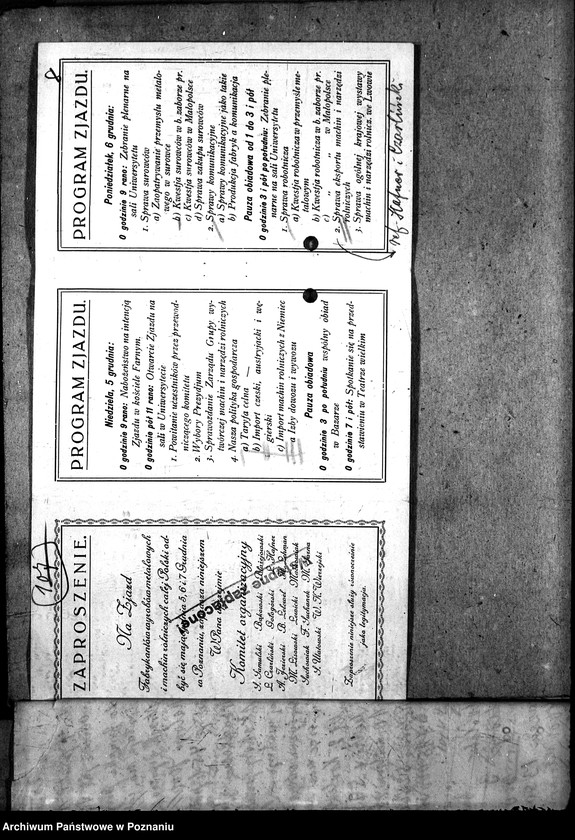 107
ZAPROSZENIE.
Na Zjazd
Fabrykantów wyrobów metalowych
i machin rolniczych całej Polski od-
być się mający dnia 5, 6 i 7 Grudnia
w Poznaniu, zaprasza niniejszem
W. Pana uprzejmie
Komitet organizacyjny
S. Samulski
L. Czarliński
St. Jasiński
Zaproszenie niniejsze służy równocześnie
jako legitymacja.
PROGRAM ZJAZDU.
Niedziela, 5 grudnia:
O godzinie 9 rano: Nabożeństwo na intencją
Zjazdu w kościele Farnym.
O godzinie pół 11 rano: Otwarcie Zjazdu na
sali w Uniwersytecie
1. Powitanie uczestników przez przewod-
niczącego komitetu
2. Wybory Prezydjum
3. Sprawozdanie Zarządu Grupy wy-
twórczej machin i narzędzi rolniczych
4. Nasza polityka gospodarcza
a) Taryfa celna —
b) Import czeski, austryjacki i wę-
gierski
c) Import machin rolniczych z Niemiec
a Izby dowozu i wywozu
Pauza obiadowa
O godzinie 3 po południu wspólny obiad
w Bazarze
O godzinie 7 i pół: Spotkanie się na przed-
stawieniu w Teatrze wielkim
8
PROGRAM ZJAZDU.
Poniedziałek, 6 grudnia:
O godzinie 9 rano: Zebranie plenarne na
sali Uniwersytetu
1. Sprawa surowców
a) Zaopatrywanie przemysłu metalo-
wego w surowce
b) Kwestja surowców w b. zaborze pr.
c) Kwestja surowców w Małopolsce
d) Sprawa zakupu surowców
2. Sprawy komunikacyjne
a) Sprawy komunikacyjne jako takie
b) Produkcja fabryk a komunikacja
Pauza obiadowa od 1 do 3 i pół
O godzinie 3 i pół po południu: Zebranie ple-
narne na sali Uniwersytetu
1. Sprawa robotnicza
a) Kwestja robotnicza w przemyśle me-
talowym
b) Kwestja robotnicza w b. zaborze pr.
c) „ „ w Małopolsce
2. Sprawa eksportu machin i narzędzi
rolniczych
3. Sprawa ogólnej krajowej wystawy
machin i narzędzi rolnicz. we Lwowie
ref. Hefner i Czarliński
Archiwum Państwowe w Poznaniu